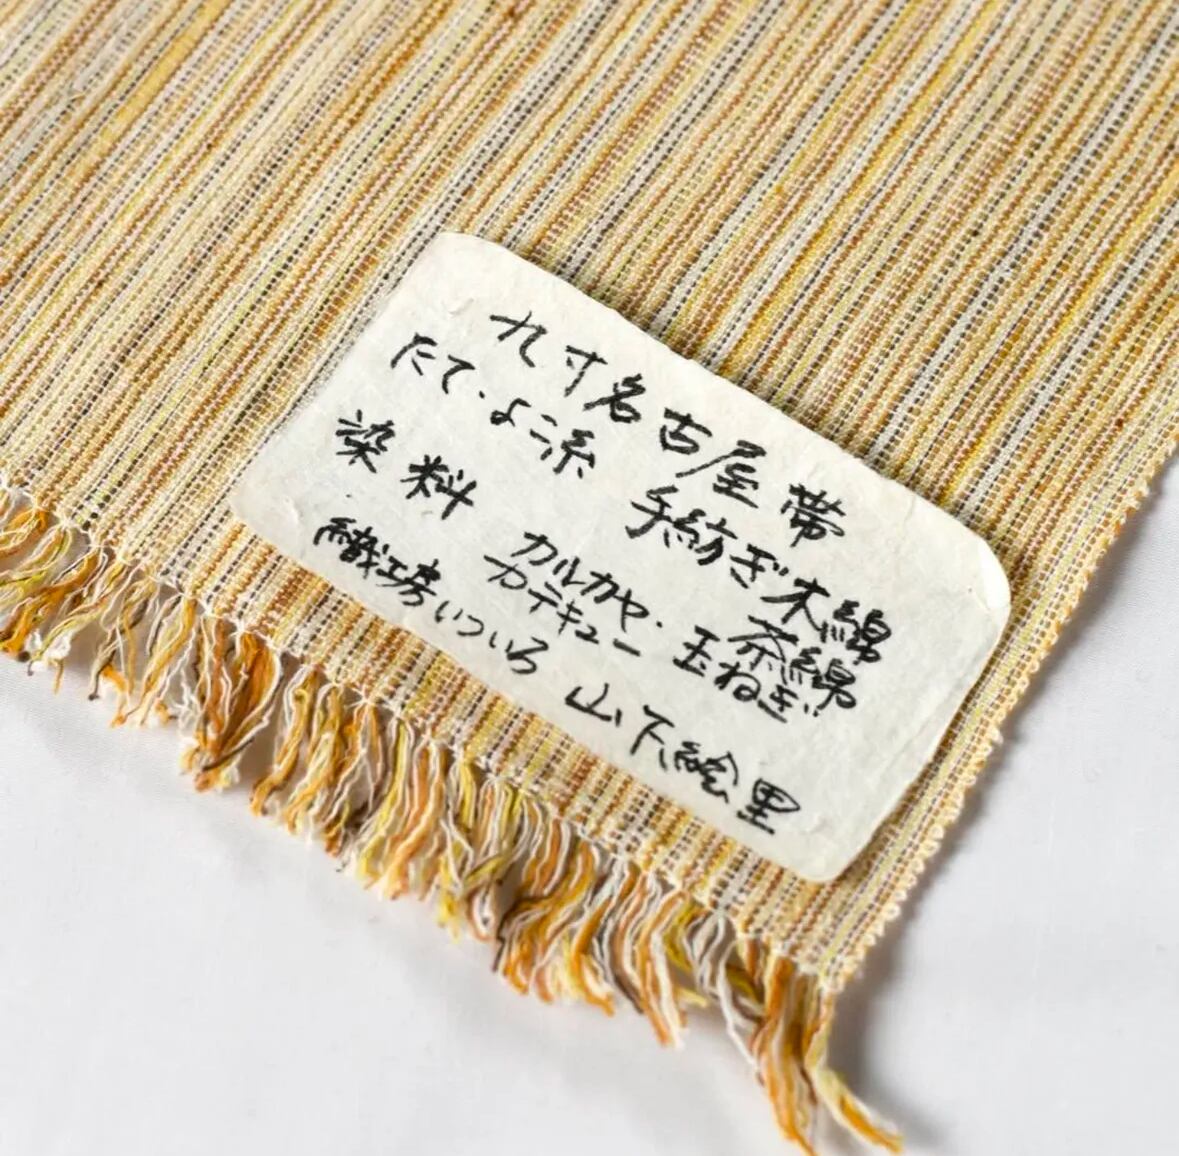 九寸名古屋帯
たて・よこ糸 手紡ぎ木綿
茶綿
染料 カルカヤ・玉ねぎ
カテキュー
織工房いついろ 山下絵里